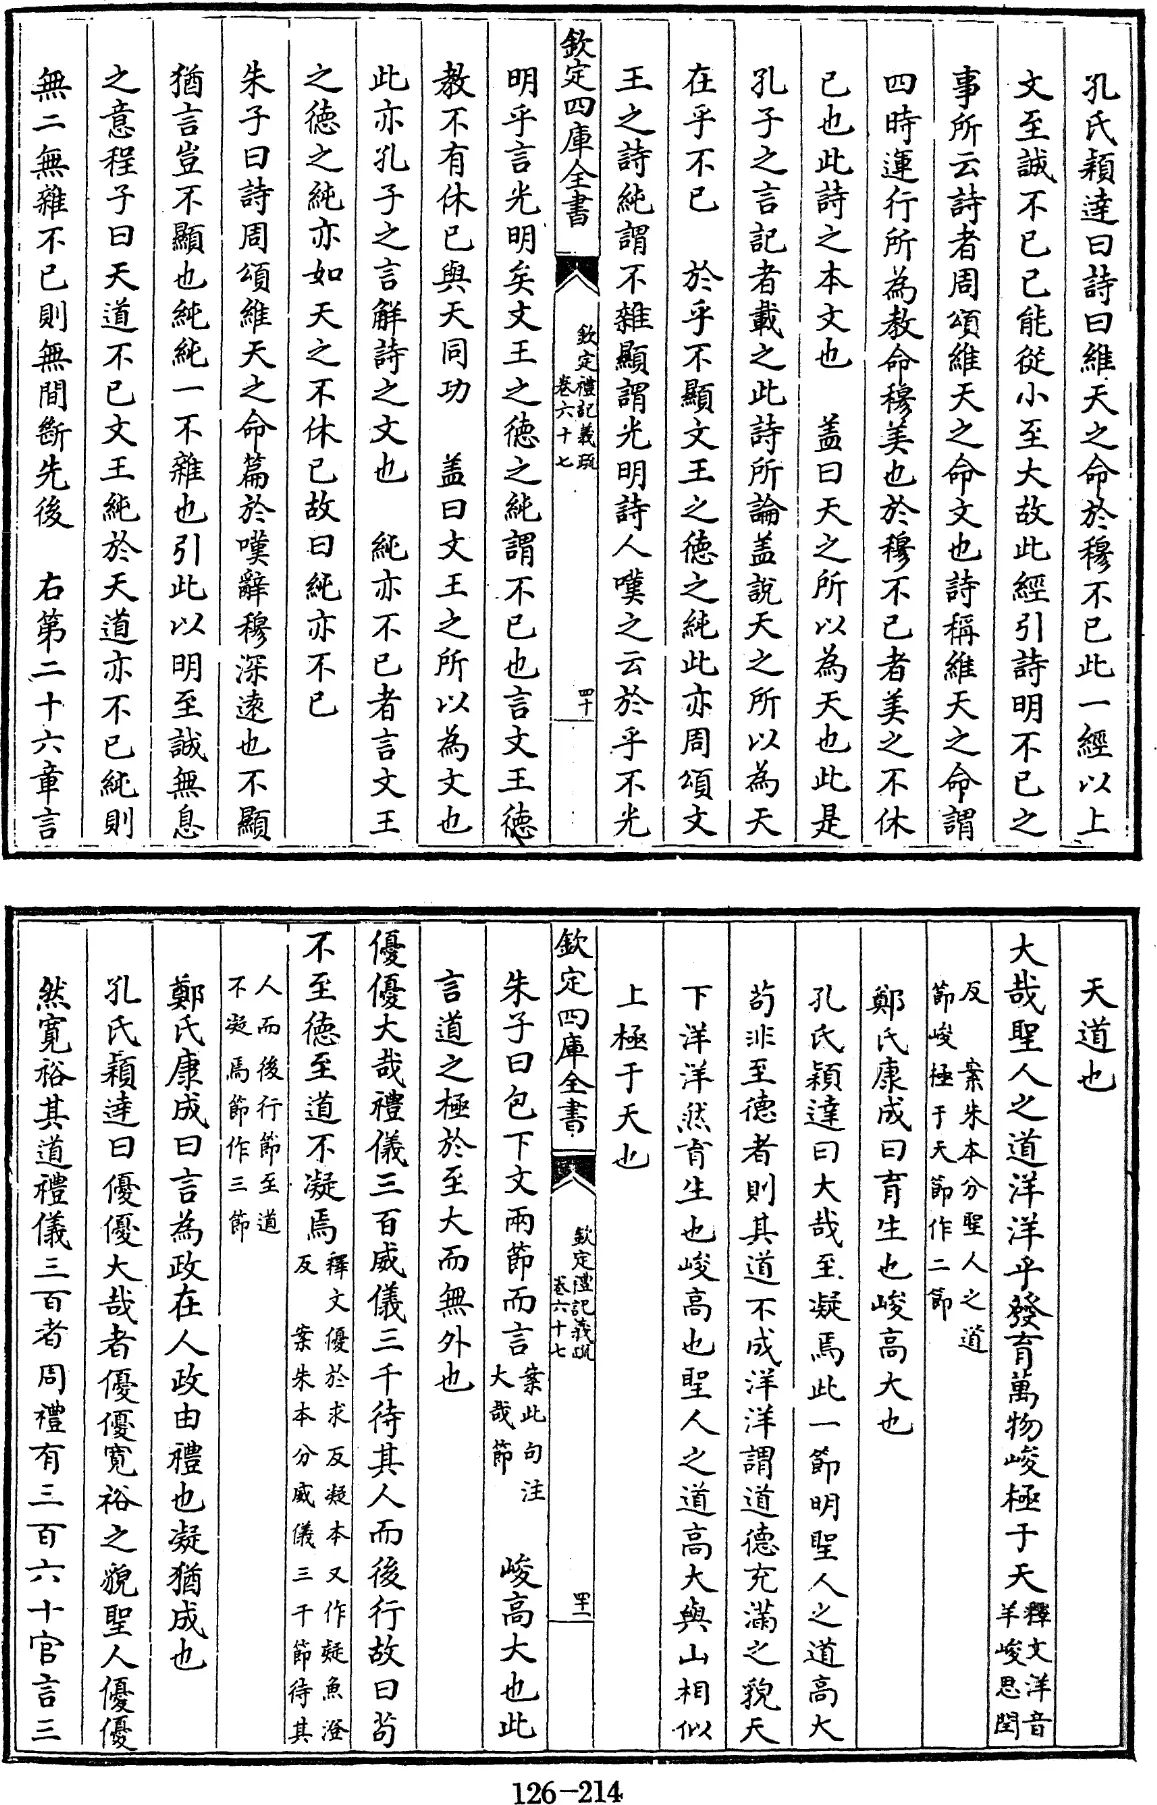 孔氏穎達曰詩曰維天之命於穆不已此一經以上
文至誠不已已能從小至大故此經引詩明不已之
事所云詩者周頌維天之命文也詩稱維天之命謂
四時運行所為教命穆美也於穆不已者美之不休
已也此詩之本文也　蓋曰天之所以為天也此是
孔子之言記者載之此詩所論蓋説天之所以為天
在乎不已　於乎不顯文王之德之純此亦周頌文
王之詩純謂不雜顯謂光明詩人嘆之云於乎不光
欽定四庫全書
欽定禮記義疏
卷六十七
四十
明乎言光明矣文王之德之純謂不已也言文王德
教不有休已與天同功　蓋曰文王之所以為文也
此亦孔子之言解詩之文也　純亦不已者言文王
之德之純亦如天之不休已故曰純亦不已
朱子曰詩周頌維天之命篇於嘆辭穆深遠也不顯
猶言豈不顯也純純一不雜也引此以明至誠無息
之意程子曰天道不已文王純於天道亦不已純則
無二無雜不已則無間斷先後　右第二十六章言
天道也
大哉聖人之道洋洋乎發育萬物峻極于天釋文洋音羊峻思閏
反　案朱本分聖人之道
節峻極于天節作二節
鄭氏康成曰育生也峻高大也
孔氏穎達曰大哉至凝焉此一節明聖人之道高大
苟非至德者則其道不成洋洋謂道德充滿之貌天
下洋洋然育生也峻高也聖人之道高大與山相似
上極于天也
欽定四庫全書
欽定禮記義疏
卷六十七
四十一
朱子曰包下文兩節而言案此句注大哉節　峻高大也此
言道之極於至大而無外也
優優大哉禮儀三百威儀三千待其人而後行故曰苟
不至德至道不凝焉釋文優於求反凝本又作疑魚澄反　案朱本分威儀三千節待其
人而後行節至道
不凝焉節作三節
鄭氏康成曰言為政在人政由禮也凝猶成也
孔氏穎達曰優優大哉者優優寛裕之貌聖人優優
然寛裕其道禮儀三百者周禮有三百六十官言三
126-214